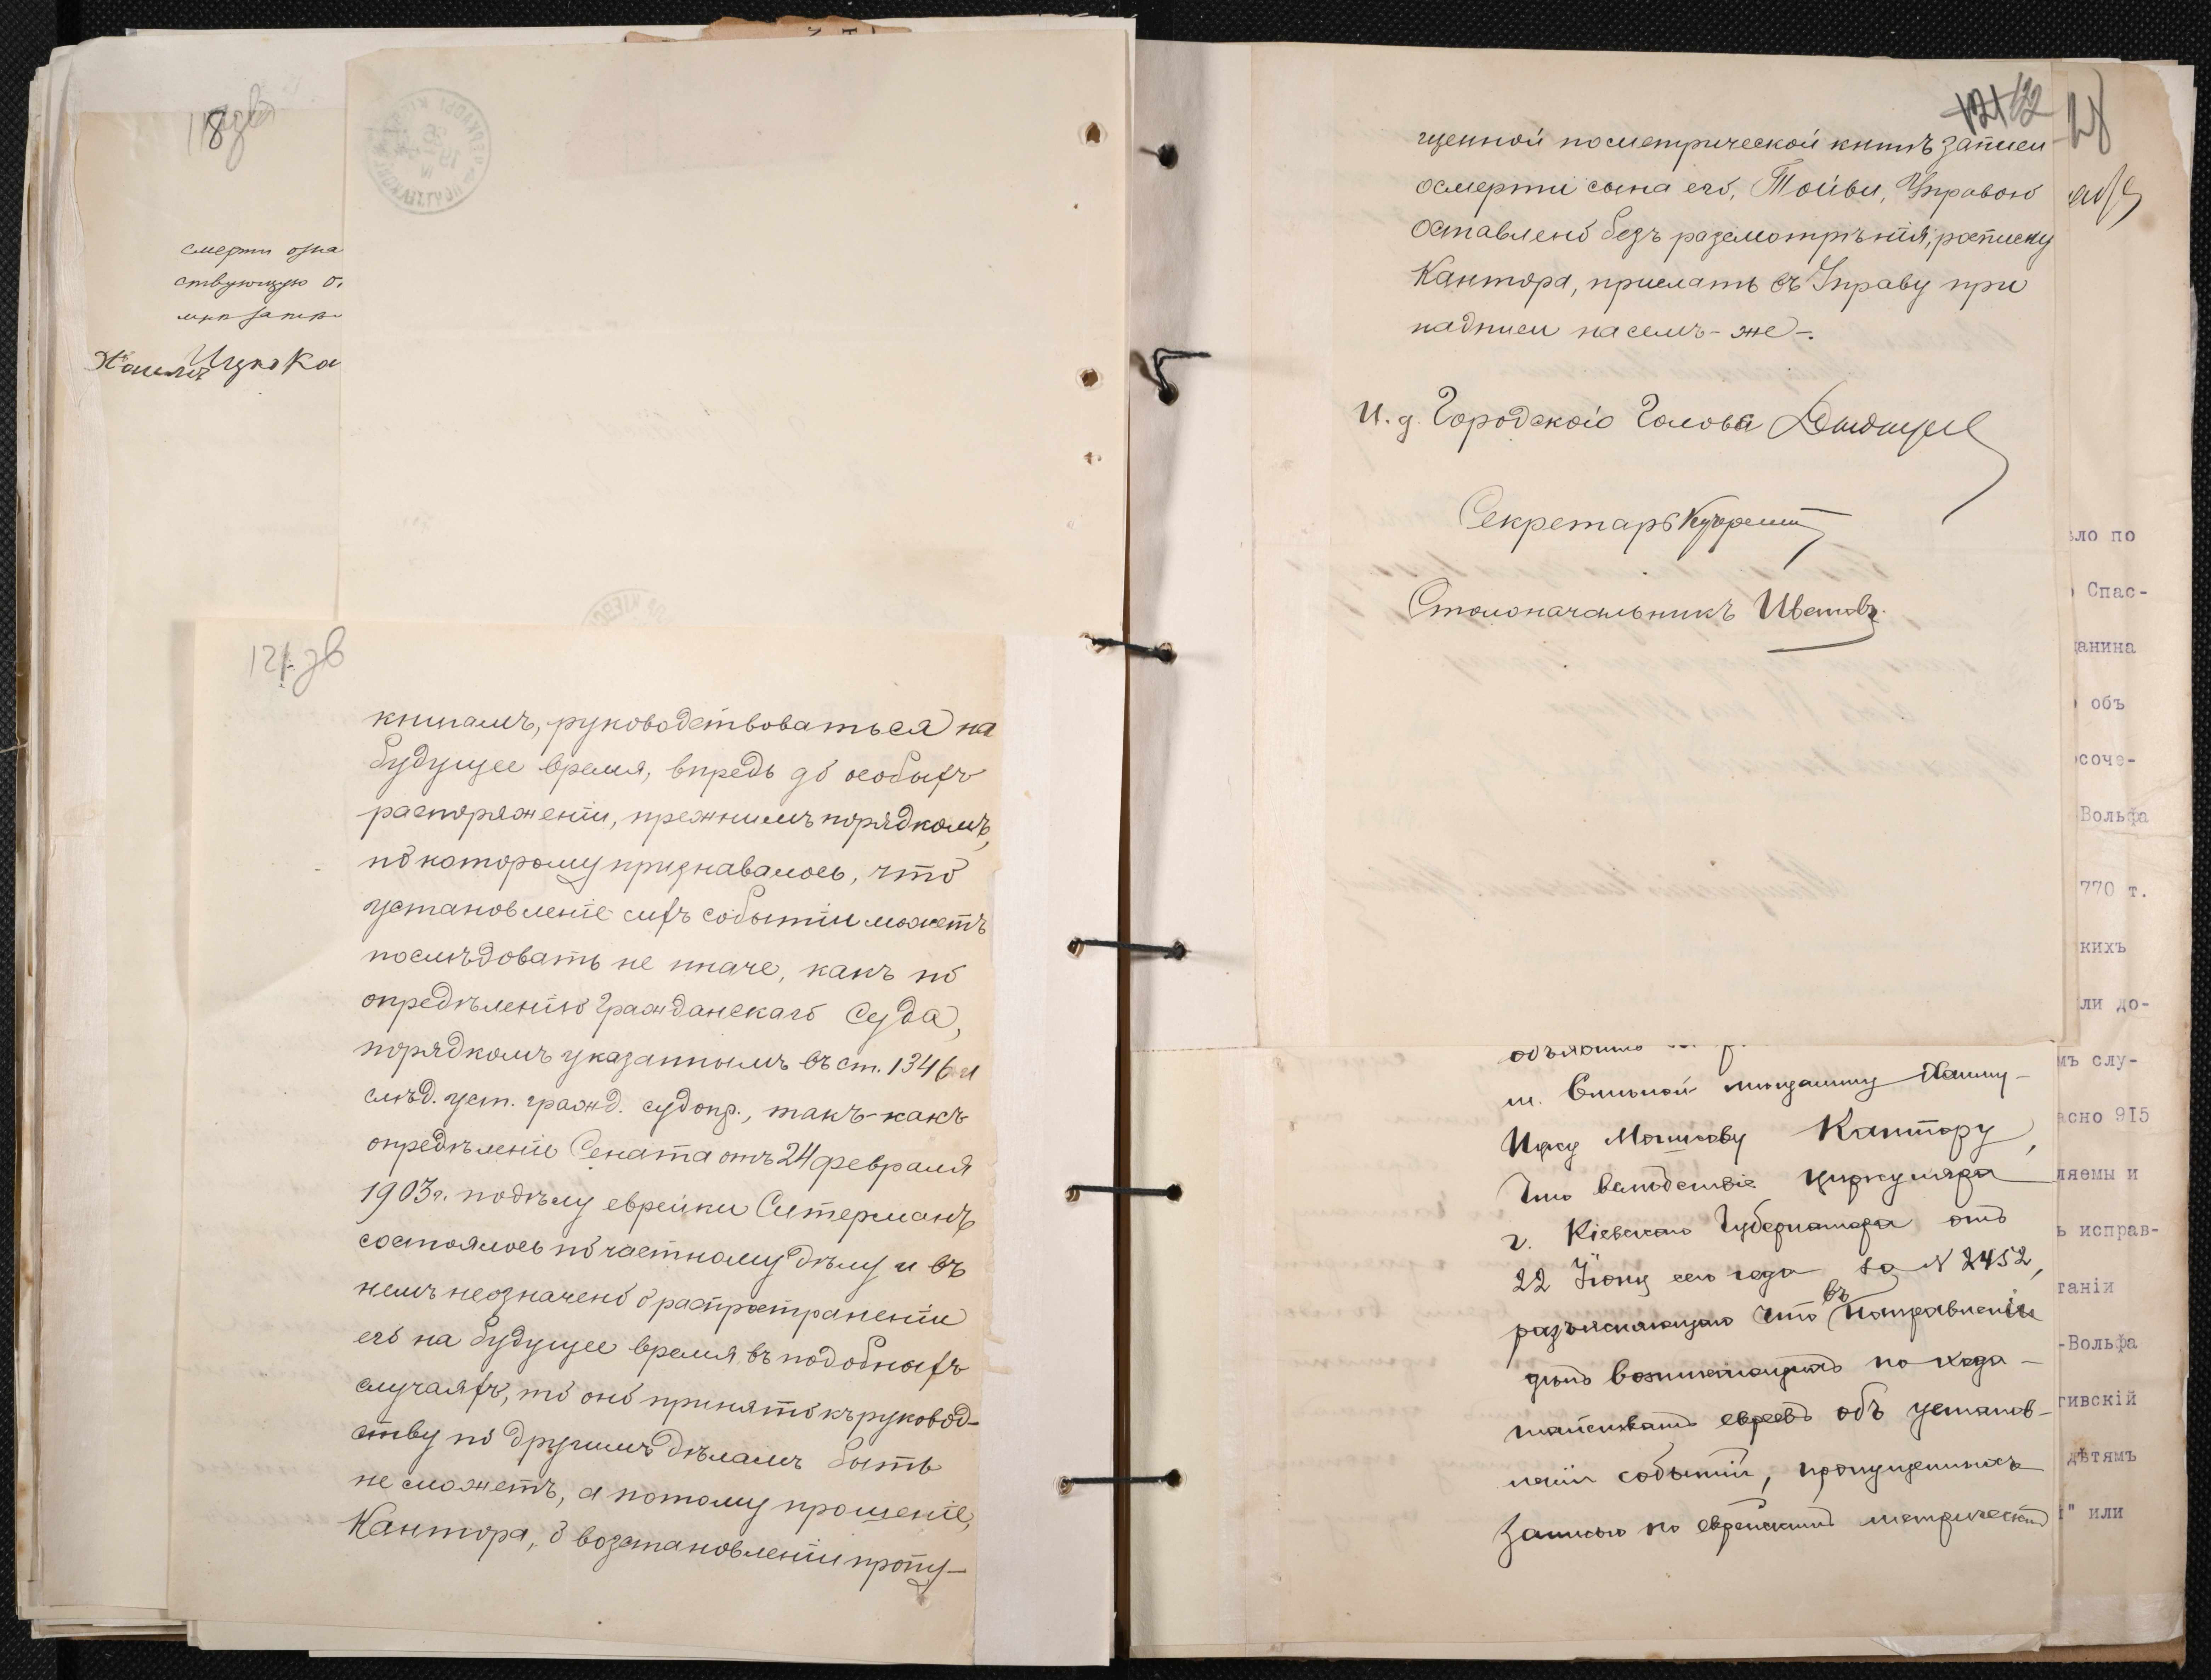 118 зв
смерти озна
ствующую
Ицко Ка
121 зв
книгамъ, руководствоваться на
будущее время, впредь до особыхъ
распоряженiи, прежнимъ порядкомъ,
по которому признавалось, что
установленiе сихъ событiи можетъ
послѣдовать не иначе, какъ по
опредѣленiю Гражданскаго Суда,
порядкомъ указаннымъ въ ст. 1346 и
слѣд. уст. гражд. судопр., такъ-какъ
опредѣленiе Сената отъ 24 февраля
1903 г. подѣлу еврейки Ситерманъ
состоялось по частному дѣлу и въ
немъ неозначено о распространенiи
его на будущее время въ подобныхъ
случаяхъ, то оно принято къ руковод-
ству по другимъ дѣламъ быть
не сможетъ, а потому прошенiе,
Кантора, о возстановленiи пропу-
121 122
щенной по метрической книгѣ записи
о смерти сына его, Тойвы, Управою
Оставлено безъ разсмотрѣнiя, росписку
Кантора, прислать въ Управу при
надписи на семъ-же-.
И. д. Городского Головы
Секретарь
Столоначальникъ Ивановъ
объявить
м.
Ицку Мошкову Кантору,
что вслѣдствiе циркуляра
г. Кiевскаго Губернатора отъ
22 Iюня сего года за № 2452,
разъясняющаго что въ направленiи
дѣлъ возникающихъ по хода-
тайствамъ евреевъ объ установ-
ленiи событiй, пропущенныхъ
записью по еврейскимъ метрическимъ
ѣло по
Спас-
данина
объ
соче-
Вольфа
770 т.
кихъ
ли до-
мъ слу-
асно 915
ляемы и
ь исправ-
танiи
-Вольфа
гивскiй
дѣтямъ
" или